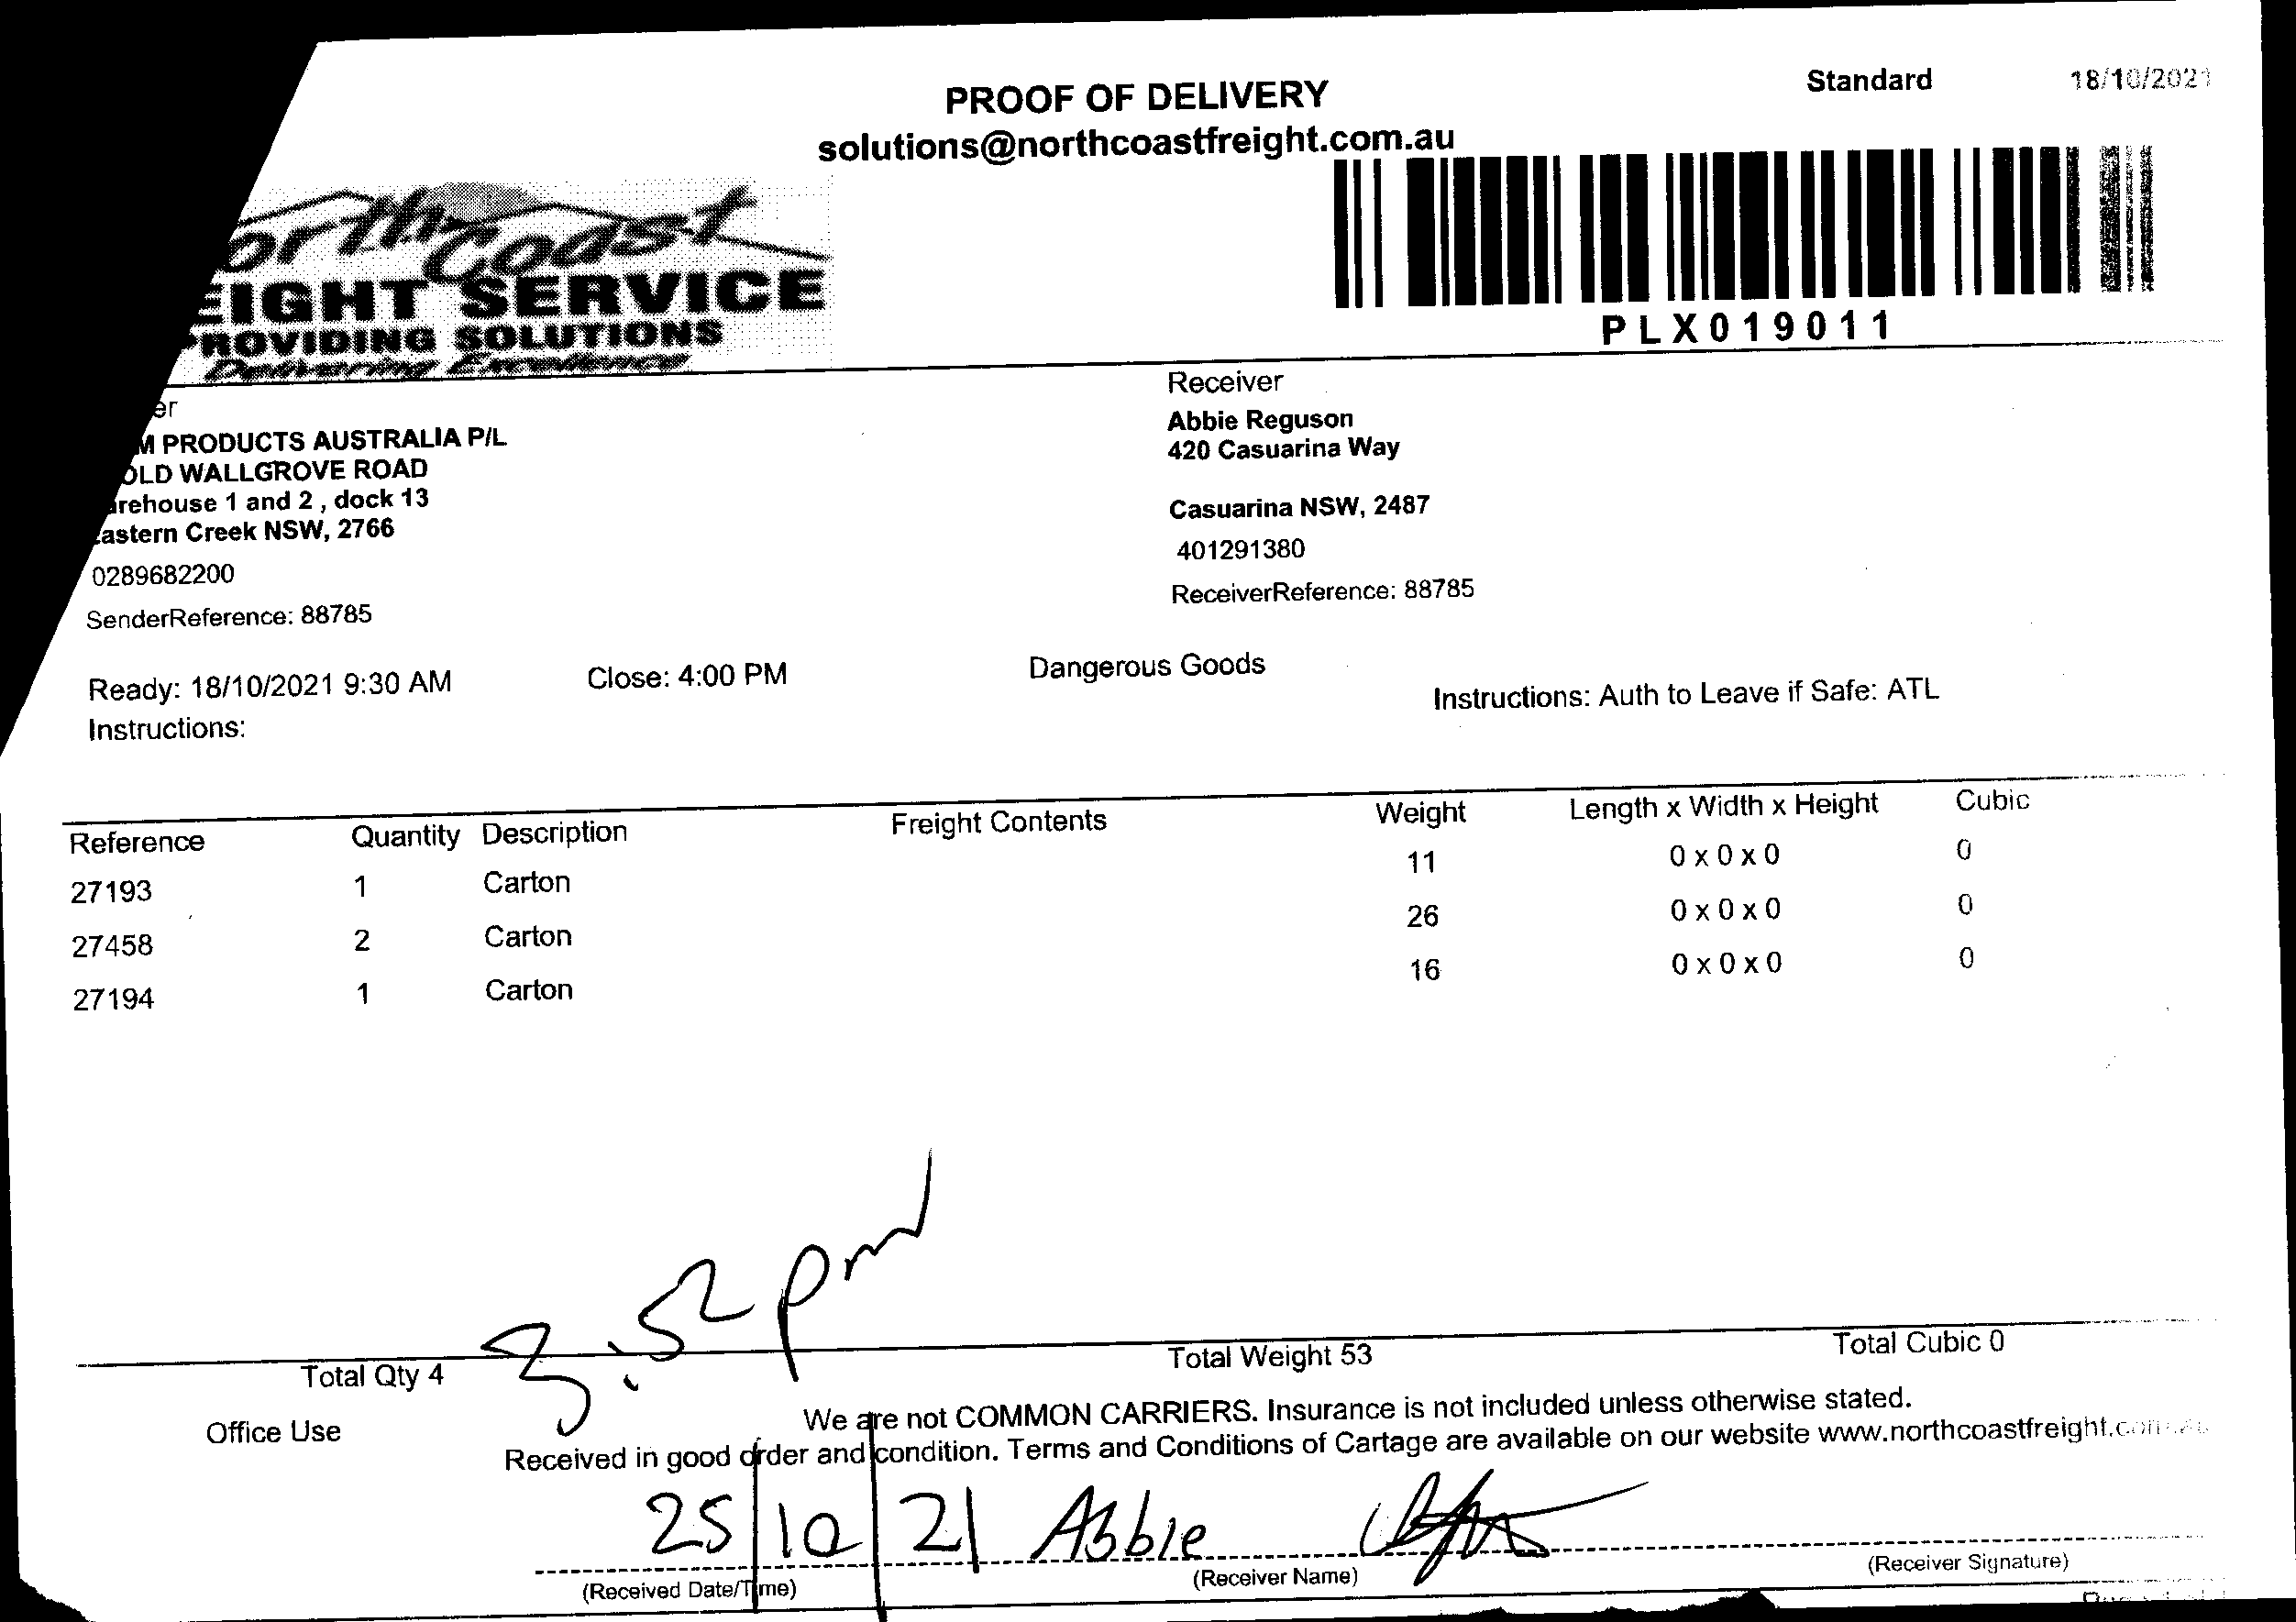 PROOF OF DELIVERY
Standard 18/10/2021
solutions@northcoastfreight.com.au
orth Coast
EIGHT SERVICE
PROVIDING SOLUTIONS
Delivering Excellence
PLX019011
er
M PRODUCTS AUSTRALIA P/L
OLD WALLGROVE ROAD
arehouse 1 and 2 , dock 13
Eastern Creek NSW, 2766
0289682200
SenderReference: 88785
Receiver
Abbie Reguson
420 Casuarina Way
Casuarina NSW, 2487
401291380
ReceiverReference: 88785
Ready: 18/10/2021 9:30 AM Close: 4:00 PM Dangerous Goods
Instructions: Instructions: Auth to Leave if Safe: ATL
Reference Quantity Description Freight Contents Weight Length x Width x Height Cubic
27193 1 Carton 11 0 x 0 x 0 0
27458 2 Carton 26 0 x 0 x 0 0
27194 1 Carton 16 0 x 0 x 0 0
3:52 pm
Total Qty 4 Total Weight 53 Total Cubic 0
Office Use
We are not COMMON CARRIERS. Insurance is not included unless otherwise stated.
Received in good order and condition. Terms and Conditions of Cartage are available on our website www.northcoastfreight.com.au
25/10/21 Abbie
(Received Date/Time) (Receiver Name) (Receiver Signature)